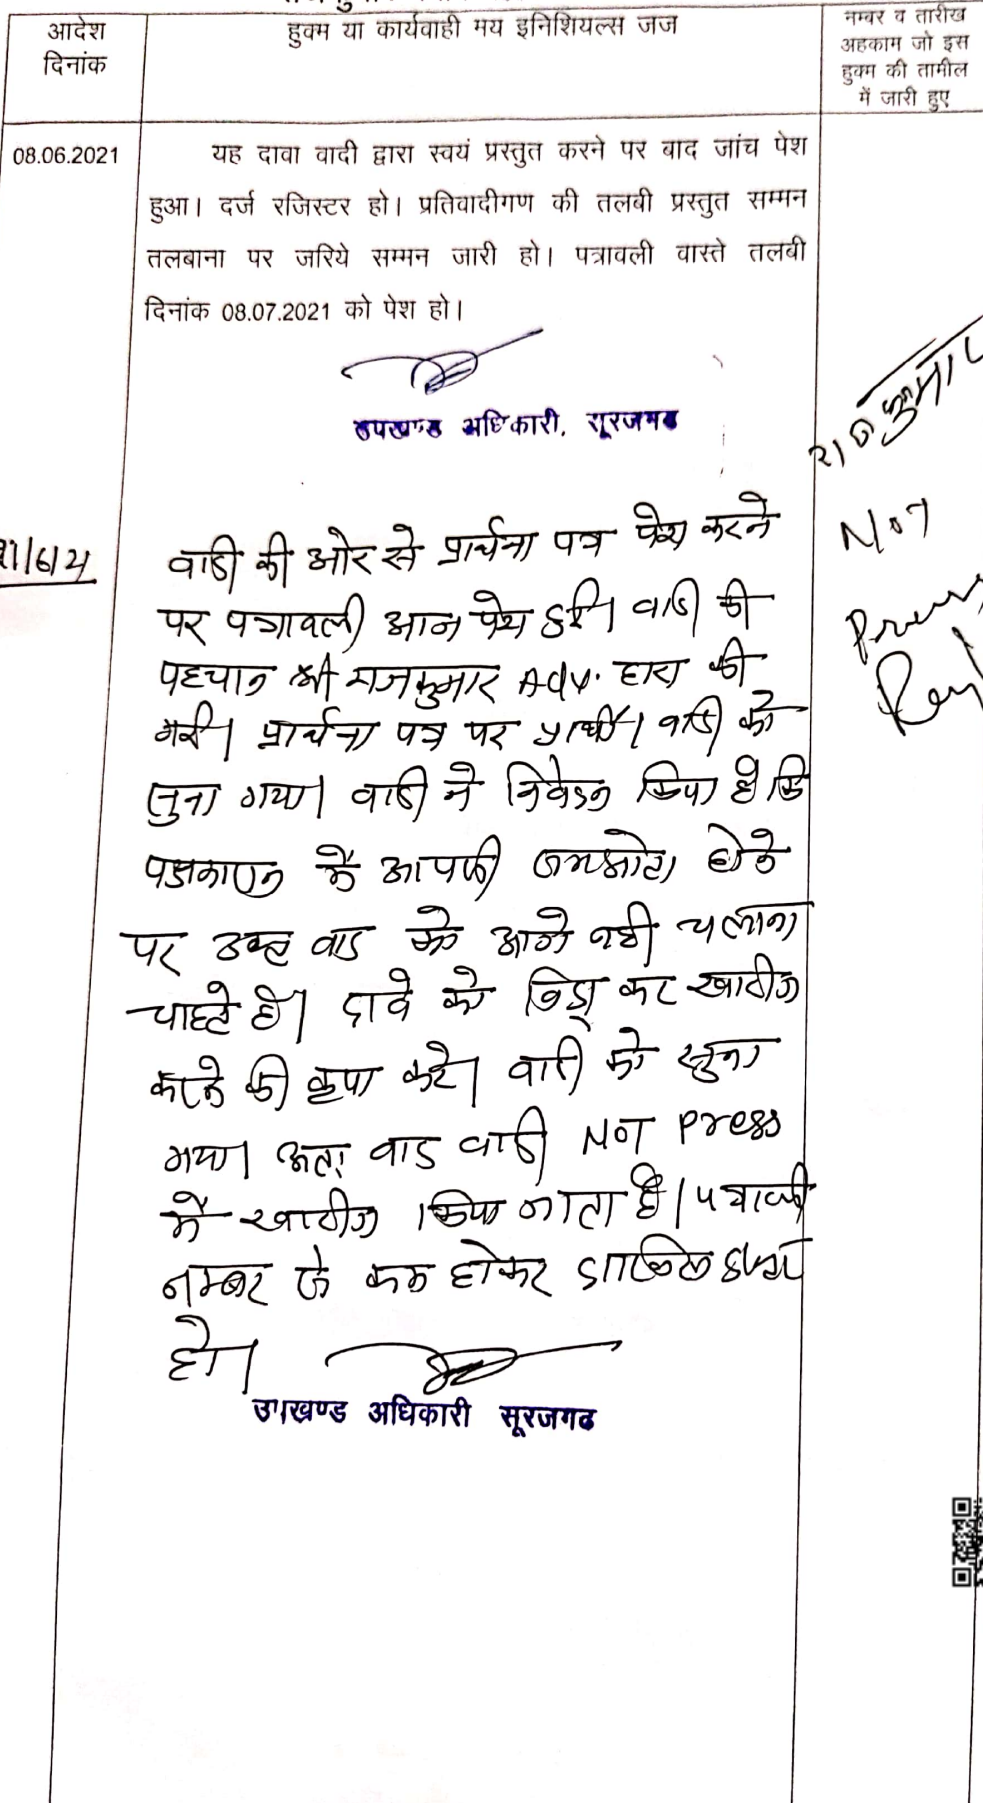 आदेश
दिनांक
हुक्म या कार्यवाही मय इनिशियल्स जज
नम्बर व तारीख
अहकाम जो इस
हुक्म की तामील
में जारी हुए
08.06.2021
यह दावा वादी द्वारा स्वयं प्रस्तुत करने पर बाद जांच पेश
हुआ। दर्ज रजिस्टर हो। प्रतिवादीगण की तलबी प्रस्तुत सम्मन
तलबाना पर जरिये सम्मन जारी हो। पत्रावली वास्ते तलबी
दिनांक 08.07.2021 को पेश हो।
उपखण्ड अधिकारी, सूरजगढ
राजकुमार
Not
वादी की ओर से प्रार्थना पत्र पेश करने
पर पत्रावली आज पेश हुई। वादी की
पहचान श्री राजकुमार Adv. द्वारा की
गई। प्रार्थना पत्र पर प्रार्थी/वादी को
सुना गया। वादी ने निवेदन किया है कि
पक्षकारान में आपसी समझौता होने
पर उक्त वाद को आगे नहीं चलाना
चाहते है। दावे को विड्रा कर खारीज
करने की कृपा करे। वादी को सुना
गया। अतः वाद वादी NOT Press
में खारीज किया जाता है। पत्रावली
नम्बर से कम होकर दाखिल दफ्तर
हो।
उपखण्ड अधिकारी सूरजगढ